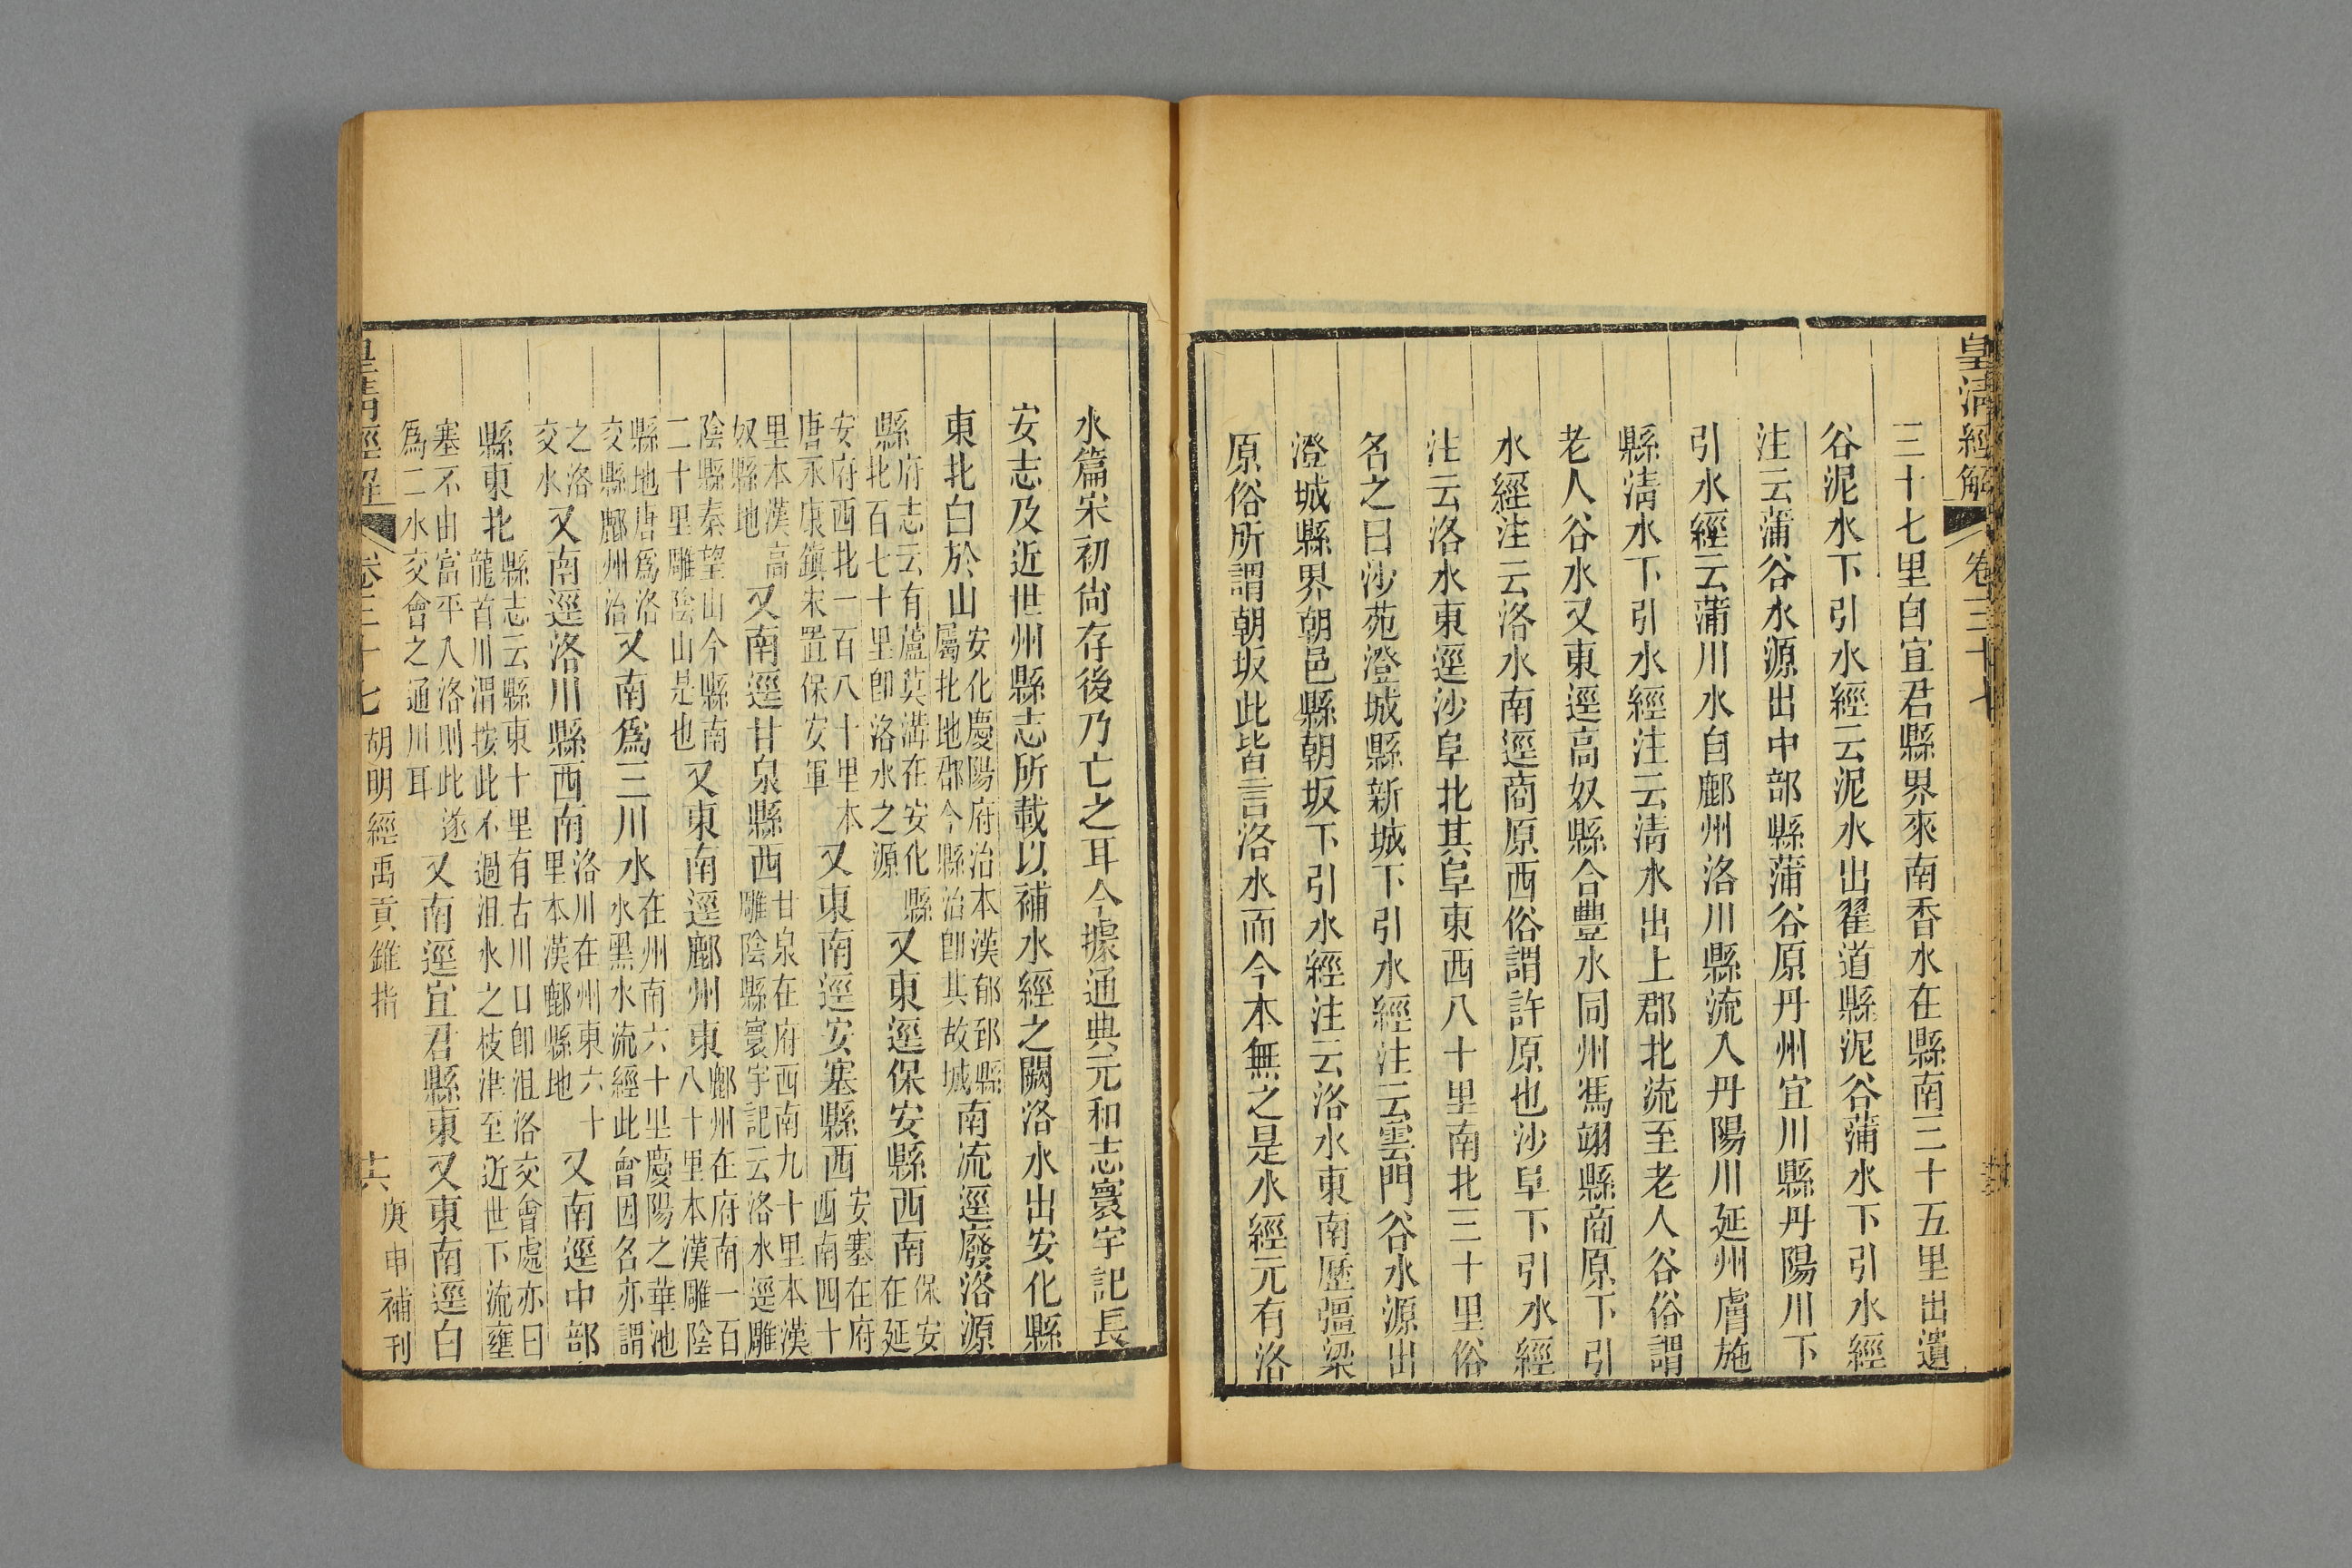 皇清經解 卷三十七
三十七里自宜君縣界來南香水在縣南二十五里出遺
谷泥水下引水經云泥水出翟道縣泥谷蒲水下引水經
注云蒲谷水源出中部縣蒲谷原丹州宜川縣丹陽川下
引水經云蒲川水自鄜州洛川縣流入丹陽川延州膚施
縣清水下引水經注云清水出上郡北流至老人谷俗謂
老人谷水又東逕高奴縣合豐水同州馮翊縣商原下引
水經注云洛水南逕商原西俗謂許原也沙阜下引水經
注云洛水東逕沙阜北其阜東西八十里南北三十里俗
名之曰沙苑澄城縣新城下引水經注云雲門谷水源出
澄城縣界朝邑縣朝坂下引水經注云洛水東南歷彊梁
原俗所謂朝坂此皆言洛水而今本無之是水經元有洛
水篇宋初尙存後乃亡之耳今據通典元和志寰宇記長
安志及近世州縣志所載以補水經之闕洛水出安化縣
東北白於山安化慶陽府治本漢郁郅縣屬北地郡今縣治卽其故城南流逕廢洛源
縣府志云有蘆莫溝在安化縣北百七十里卽洛水之源又東逕保安縣西南保安在延
安府西北一百八十里本唐永康鎭宋置保安軍又東南逕安塞縣西安塞在府西南四十
里本漢高奴縣地又南逕甘泉縣西甘泉在府西南九十里本漢雕陰縣寰宇記云洛水逕雕
陰縣秦望山今縣南二十里雕陰山是也又東南逕鄜州東鄜州在府南一百八十里本漢雕陰
縣地唐爲洛交縣鄜州治又南爲三川水在州南六十里慶陽之華池水黑水流經此會因名亦謂
之洛交水又南逕洛川縣西南洛川在州東六十里本漢鄜縣地又南逕中部
縣東北縣志云縣東十里有古川口卽沮洛交會處亦曰龍首川渭按此不過沮水之枝津至近世下流壅
塞不由富平入洛則此遂爲二水交會之通川耳又南逕宜君縣東又東南逕白
皇清經解 卷三十七 胡明經禹貢錐指 十六 庚申補刊